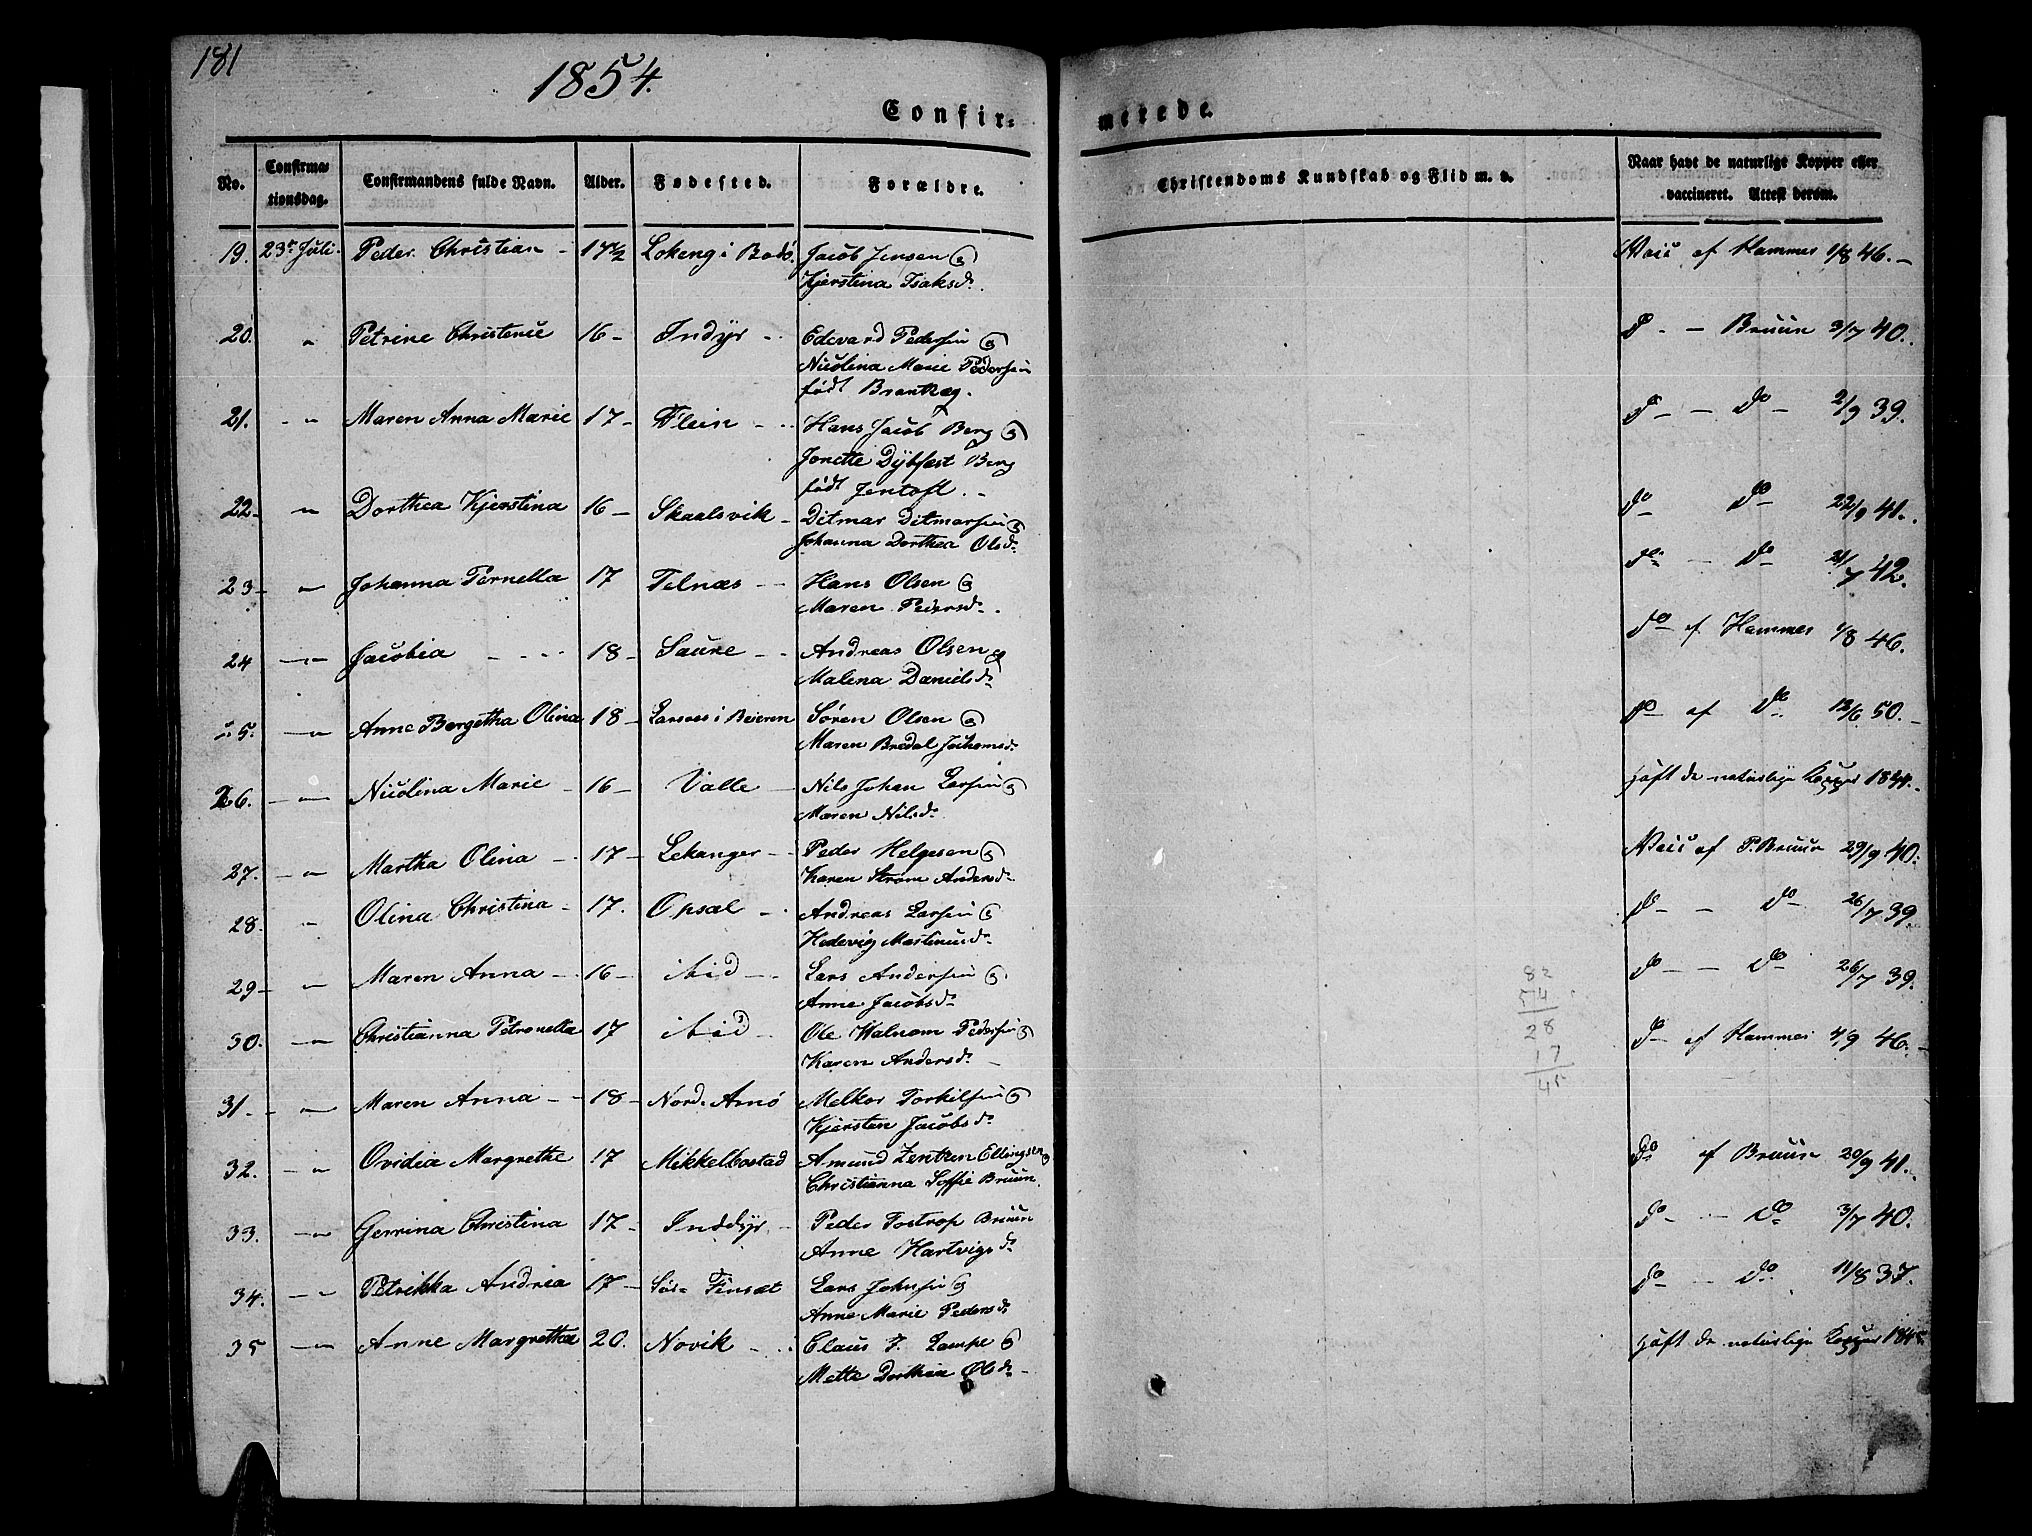 181
1854.
Confir-
merede.
No.
Confirma-
tionsdag.
Confirmandens fulde Navn.
Alder.
Fødested.
Forældre.
Christendoms Kundskab og Flid m. v.
Naar havt de naturlige Kopper eller
vaccineret. Attest derom.
19. 23de Juli. Peder Christian - 17½ Lokeng i Bodö. Jacob Jensen og Vacc. af Hammer 1/8 46. -
Kjerstina Isaksd.
20. " Petrine 16 - Indyr - Edevard Pedersen og Do - Bruun 3/7 40.
Nicolina Marie Pedersen
født
21. " Maren Anna Marie 17 - Flein - Hans Jacob Berg og Do - Do - 2/9 39.
Jonette Dybfest Berg
født Jentoft. -
22 - " Dorthea Kjerstina 16 - Skaalsvik - Ditmar Ditmarsen og Do Do 22/9 41.
Johanna Dorthea Olsd.
23 - " Johanna Pernella 17 Telnæs - Hans Olsen og Do - Do 21/7 42.
Maren Pedersd. -
24 " Jacobia - - - 18 - Saure - - Andreas Olsen og Do af Hammer 1/8 46.
Malena Danielsd.
25. " Anne Bergetha Olina 18 - i Beieren Søren Olsen og Do af Do 12/6 50. -
Maren Bredal Jochomsd.
26. - " Nicolina Marie - 16 - Valle - Nils Johan Larsen og haft de naturlige Kopper 1844. -
Maren Nilsd.
27. - " Martha Olina - 17 - Lekanger - Peder Helgesen og Vacc af P. Bruun 29/9 40.
Karen Strøm Andersd.
28. " Olina Christina - 17. Opsal - Andreas Larsen og Do - Do 26/7 39.
Hedevig Martinusd.
29 - " Maren Anna - 16 - ibid - Lars Andersen og Do - - Do 26/7 39.
Anne Jacobsd.
30. - " Christianna Petronella 17 ibid - Ole Walnom Pedersen og Do af Hammer 4/9 46. -
Karen Andersd. -
31. - " Maren Anna - - 18 - Nord. Arnö Melkor Torkilsen og
Kjersten Jacobsd.
32. - " Ovidia Margrethe 17 Mikkelbostad Amund Zentzen Ellingsen og Do af Bruun 20/9 41.
Christianna Soffie Bruun.
33. - " Gerrina Christina 17 - Inddyr - Peder Fostrop Bruun Do - Do 3/7 40.
Anne Hartvigsd.
34. - " Petrikka Andrea 17 - Sör - Finset Lars Johnsen og Do - Do. 11/8 37.
Anne Marie Pedersd.
35 - " Anne Margretha 20. Novik - Claus J. Lampe og haft de naturlige Kopper
Mette Dorthea Olsd. -
82
54
28
17
45